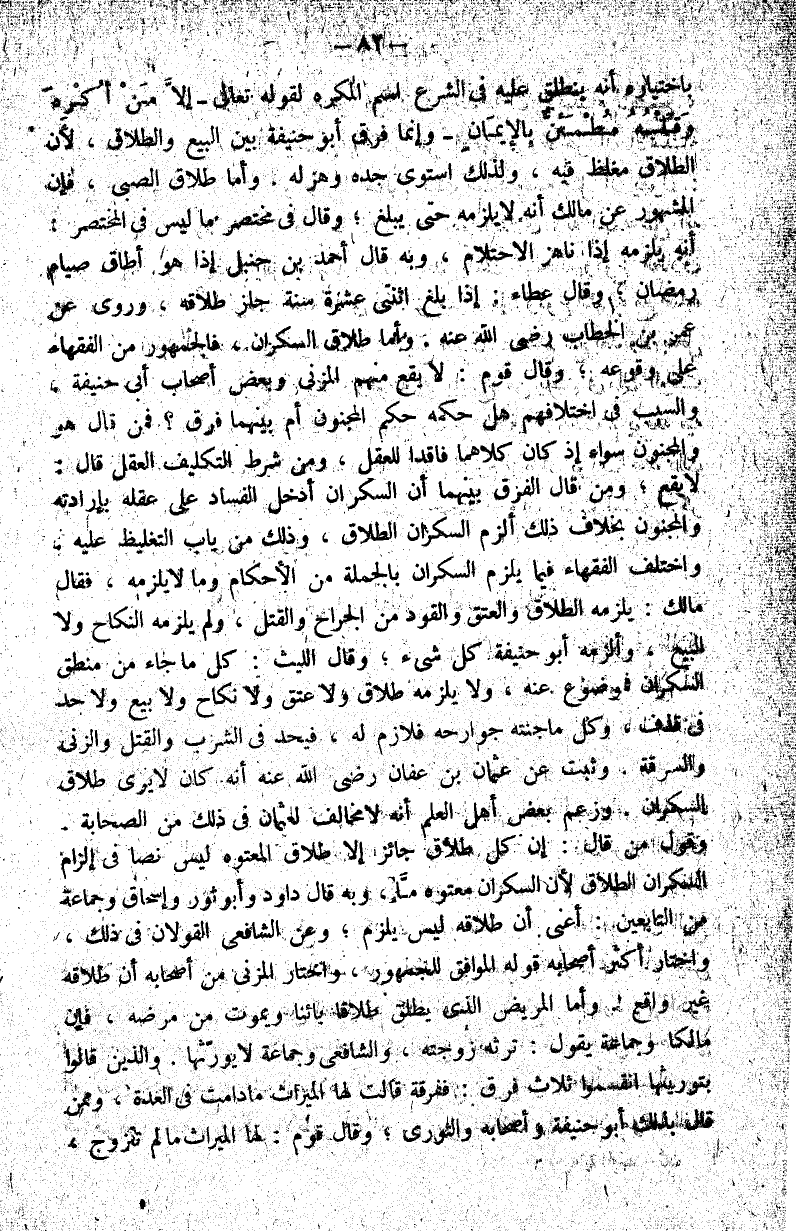 — ٨٢ —
باختياره أنه ينطلق عليه فى الشرع اسم المكره لقوله تعالى ـ إلاَّ مَنْ أُكْرِهَ
وَقَلْبُهُ مُطْمَئِنٌّ بِالإِيمَانِ ـ وإنما فرق أبو حنيفة بين البيع والطلاق ، لأن
الطلاق مغلظ فيه ، ولذلك استوى جده وهزله . وأما طلاق الصبى ، فإن
المشهور عن مالك أنه لايلزمه حتى يبلغ ؛ وقال فى مختصر ما ليس فى المختصر :
أنه يلزمه إذا ناهز الاحتلام ، وبه قال أحمد بن حنبل إذا هو أطاق صيام
رمضان ؛ وقال عطاء : إذا بلغ اثنتى عشرة سنة جاز طلاقه ، وروى عن
عمر بن الخطاب رضى الله عنه . وأما طلاق السكران ، فالجمهور من الفقهاء
على وقوعه ؛ وقال قوم : لا يقع منهم المزنى وبعض أصحاب أبى حنيفة ،
والسبب فى اختلافهم هل حكمه حكم المجنون أم بينهما فرق ؟ فمن قال هو
والمجنون سواء إذ كان كلاهما فاقدا للعقل ، ومن شرط التكليف العقل قال :
لايقع ؛ ومن قال الفرق بينهما أن السكران أدخل الفساد على عقله بإرادته
والمجنون بخلاف ذلك ألزم السكران الطلاق ، وذلك من باب التغليظ عليه .
واختلف الفقهاء فيما يلزم السكران بالجملة من الأحكام وما لايلزمه ، فقال
مالك : يلزمه الطلاق والعتق والقود من الجراح والقتل ، ولم يلزمه النكاح ولا
البيع ، وألزمه أبو حنيفة كل شىء ؛ وقال الليث : كل ما جاء من منطق
السكران فموضوع عنه ، ولا يلزمه طلاق ولا عتق ولا نكاح ولا بيع ولا حد
فى قذف ، وكل ماجنته جوارحه فلازم له ، فيحد فى الشرب والقتل والزنى
والسرقة . وثبت عن عثمان بن عفان رضى الله عنه أنه كان لايرى طلاق
السكران . وزعم بعض أهل العلم أنه لامخالف لعثمان فى ذلك من الصحابة .
وقول من قال : إن كل طلاق جائز إلا طلاق المعتوه ليس نصا فى إلزام
السكران الطلاق لأن السكران معتوه مّا ، وبه قال داود وأبو ثور وإسحاق وجماعة
من التابعين : أعنى أن طلاقه ليس يلزم ؛ وعن الشافعى القولان فى ذلك ،
واختار أكثر أصحابه قوله الموافق للجمهور ، واختار المزنى من أصحابه أن طلاقه
غير واقع . وأما المريض الذى يطلق طلاقا بائنا ويموت من مرضه ، فإن
مالكا وجماعة يقول : ترثه زوجته ، والشافعى وجماعة لايورّثها . والذين قالوا
بتوريثها انقسموا ثلاث فرق : ففرقة قالت لها الميراث مادامت فى العدة ، وممن
قال بذلك أبو حنيفة وأصحابه والثورى ؛ وقال قوم : لها الميراث مالم تتزوج ،